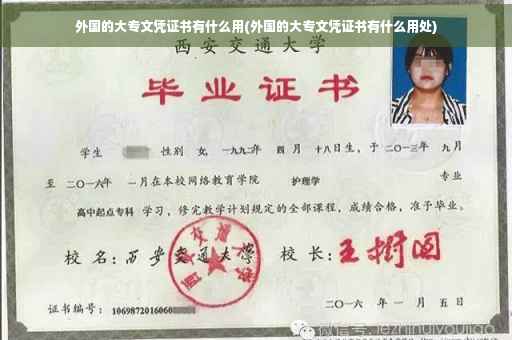 外国的大专文凭证书有什么用(外国的大专文凭证书有什么用处)
西安交通大学
毕业证书
学生 性别 女, 一九九二年 四月 十八日生, 于二〇一三年 九月
至 二〇一六年 一月在本校网络教育学院 护理学 专业
高中起点专科 学习, 修完教学计划规定的全部课程, 成绩合格, 准予毕业。
校 名: 西安交通大学 校 长: 王树国
西安交通大学
证书编号: 1069872016060
二〇一六 年 一 月 五 日
微信号: jezhihuiyoujiao